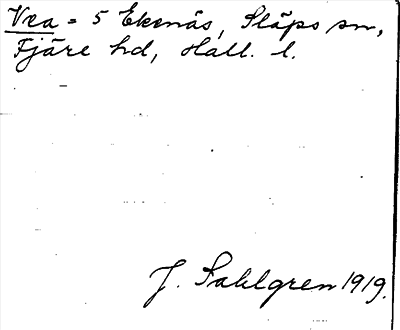 Vra = 5 Ekenäs, Släps sn,
Fjäre hd, Hall. l.
J. Sahlgren 1919.